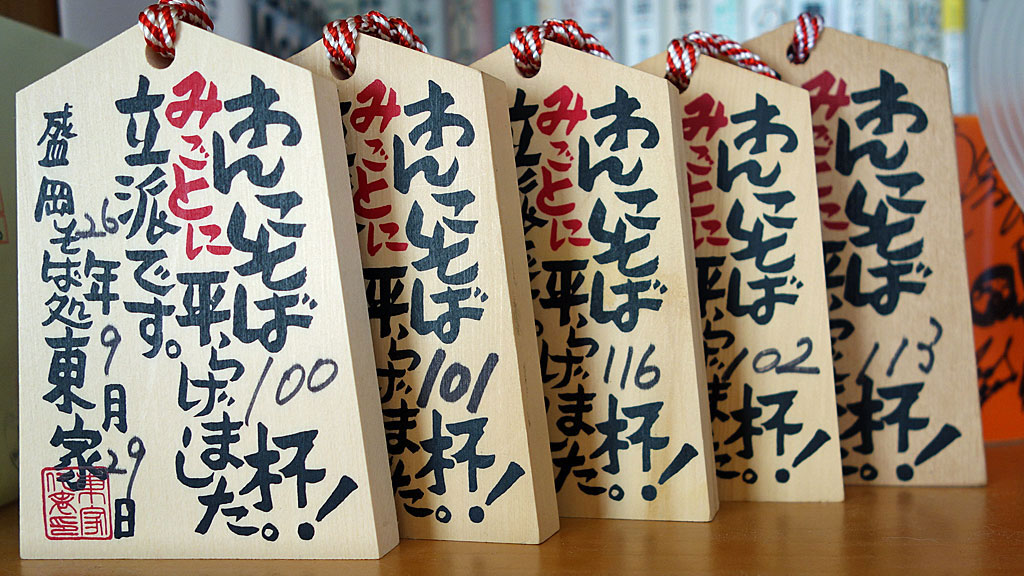 わんこそば100杯!
みごとに平らげました。
立派です。
26年9月29日
盛岡そば処東家
わんこそば101杯!
みごとに平らげました。
わんこそば116杯!
みごとに平らげました。
立派で
わんこそば102杯!
みごとに平
わんこそば113杯!
みごとに